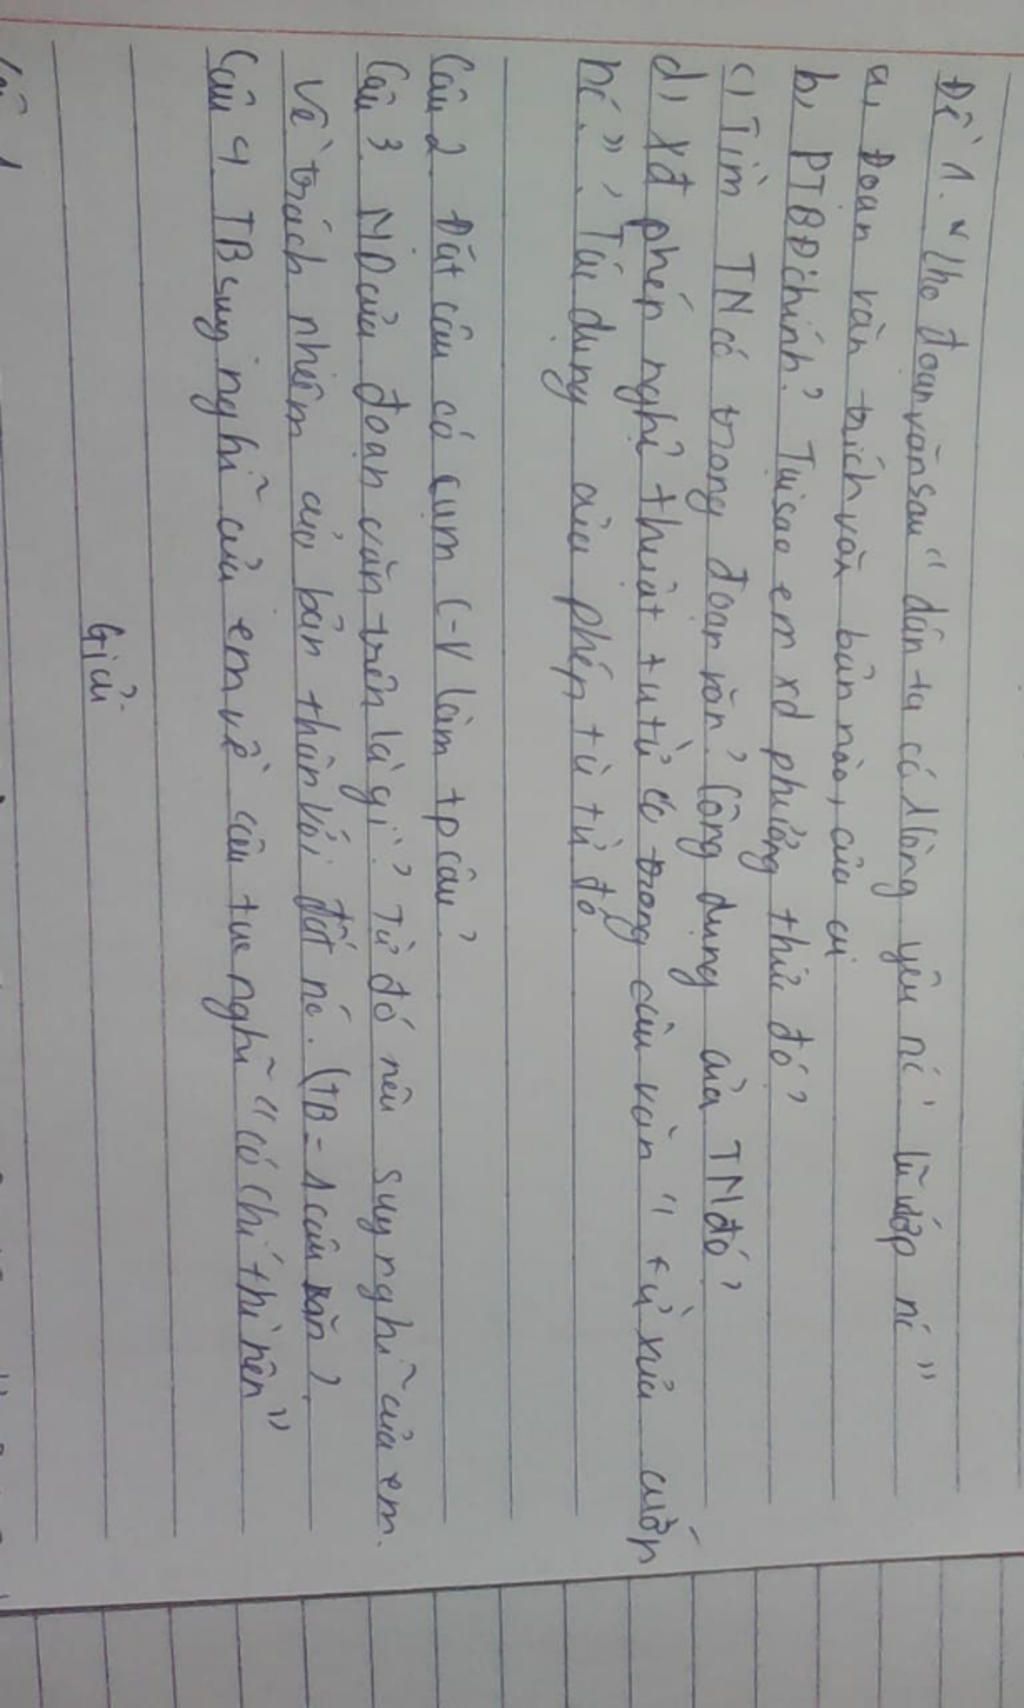 Đề 1. "Cho đoạn văn sau" dân ta có 1 lòng yêu nc' lũ cướp nc"
a, Đoạn văn trích văn bản nào, của ai
b, PTBĐ chính? Tại sao em xđ phương thức đó?
c, Tìm TN có trong đoạn văn? Công dụng của TN đó?
d, xđ phép nghệ thuật tu từ có trong câu văn " từ xưa cướp
nc.", Tác dụng của phép tu từ đó.
Câu 2 Đặt câu có cụm C-V làm tp câu?
Câu 3 ND của đoạn văn trên là gì? Từ đó nêu suy nghĩ của em.
về trách nhiệm của bản thân với đất nc. (TB - 1 câu văn)
Câu 4 TB suy nghĩ của em về câu tục nghĩ "có chí thì nên"
Giải
Câu 1